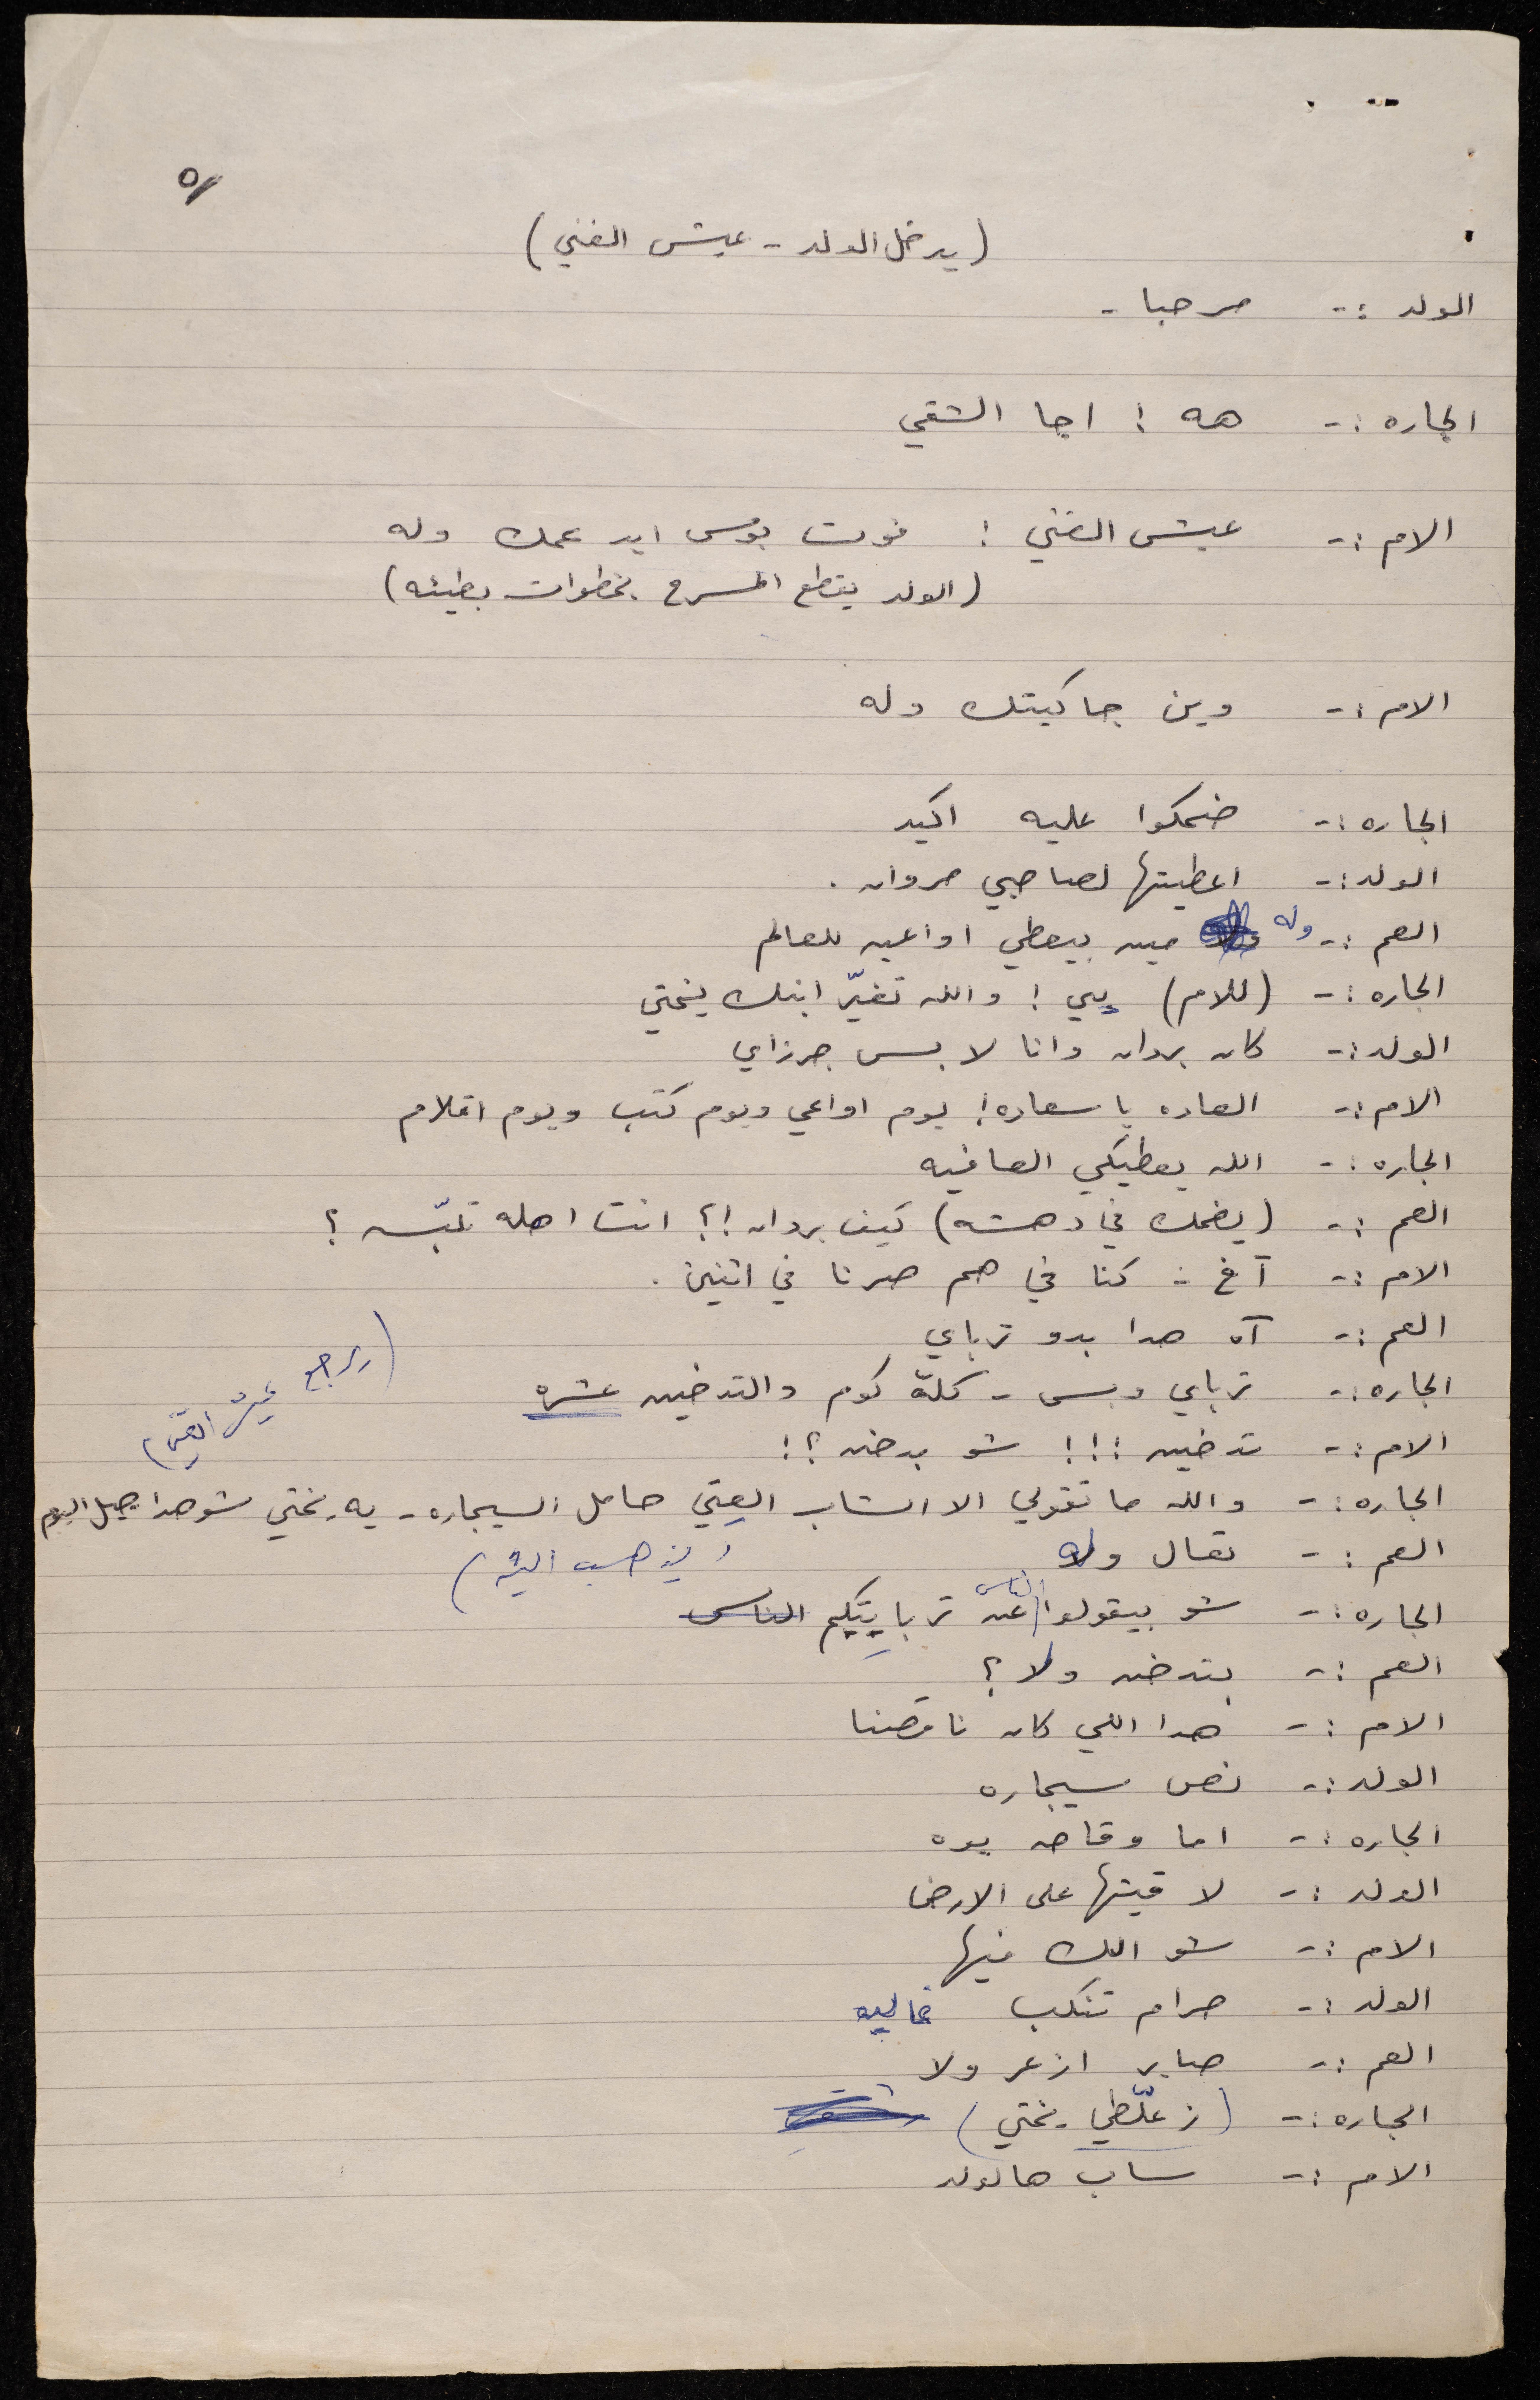 ٥
(يدخل الولد - عيش الغني)
الولد :- مرحبا -
الجاره :- هه ! اجا الشقي
الام :- عيش الغني ! فوت بوس ايد عمك وله
(الولد يقطع المسرح بخطوات بطيئه)
الام :- وين جاكيتك وله
الجاره :- ضحكوا عليه اكيد
الولد :- اعطيتها لصاحبي مروان .
العم :- وله مين بيعطي اواعيه للعالم
الجاره :- (للام) يي ! والله تغيّر ابنك يختي
الولد :- كان بردان وانا لابس جرزاي
الام :- العاده يا سعاده ! يوم اواعي ويوم كتب ويوم اقلام
الجاره :- الله يعطيكي العافيه
العم :- (يضحك في دهشه) كيف بردان !؟ انت اهله تلبّسه ؟
الام :- آخ - كنا في هم صرنا في اثنين .
العم :- آه هدا بدو ترباي
(يرجع عيش الغني)
الجاره :- ترباي وبس - كلة كوم والتدخين عشره
الام :- تدخين !!! شو بدخن ؟!
الجاره :- والله ما تقولي الا الشاب العِتِي حامل السيجاره - يه يختي شو هدا جيل اليوم
العم :- تعال وله
(يذهب اليه)
الجاره :- شو بيقولوا الناس عنه ترباييتكم الناس
العم :- بتدخن ولا ؟
الام :- هدا اللي كان ناقصنا
الولد :- نص سيجاره
الجاره :- اما وقاحه يوه
الولد :- لاقيتها على الارض
الام :- شو الك فيها
الولد :- حرام تنكب غاليه
العم :- صاير ازعر ولا
الجاره :- (زعلّطي يختي)
الام :- ساب هالولد